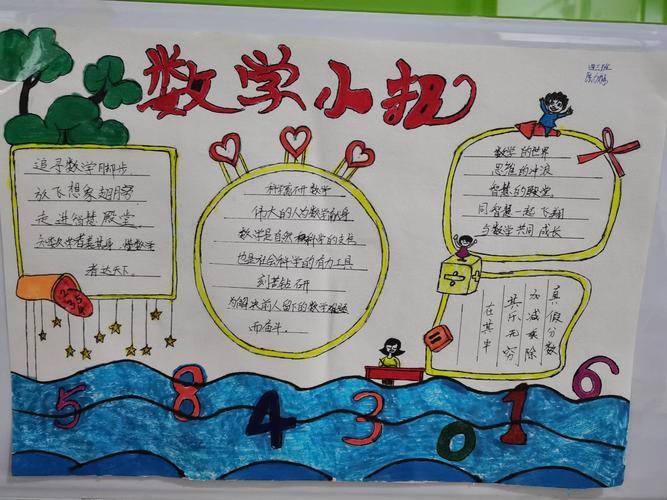 数学小报
四三班
追寻数学脚步，
放飞想象翅膀
走进智慧殿堂，
者达天下。
科技研数学
伟大的人为数学献身
数学是自然科学的支柱
也是社会科学的有力工具
刻苦钻研
为解决前人留下的数学难题
而奋斗。
数学的世界
思维的冲浪
智慧的殿堂，
同智慧一起飞翔
与数学共同成长
真假分数
加减乘除
其乐无穷
在其中
2
3 5
÷
=
5 8 4 3 0 1 6